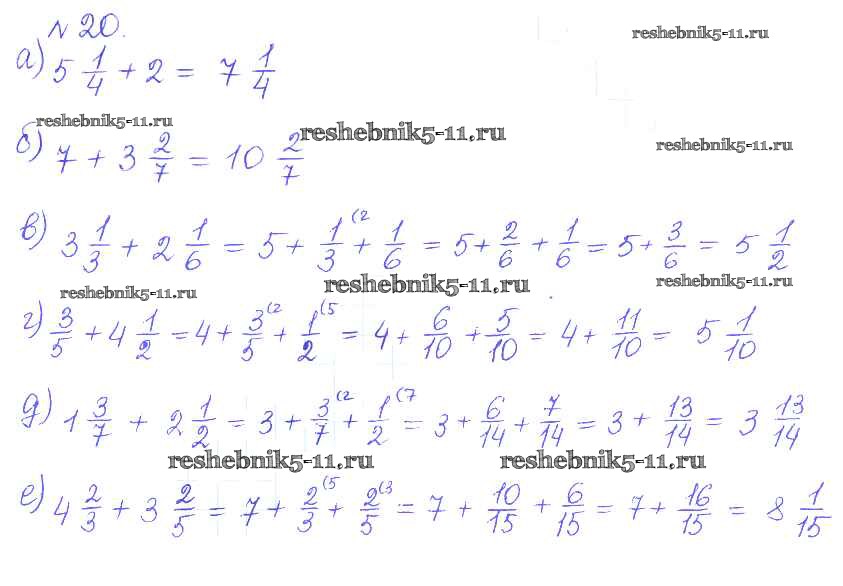 № 20.
reshebnik5-11.ru
а) 5 1/4 + 2 = 7 1/4
reshebnik5-11.ru
reshebnik5-11.ru
б) 7 + 3 2/7 = 10 2/7
reshebnik5-11.ru
в) 3 1/3 + 2 1/6 = 5 + 1/3 (2 + 1/6 = 5 + 2/6 + 1/6 = 5 + 3/6 = 5 1/2
reshebnik5-11.ru
reshebnik5-11.ru
reshebnik5-11.ru
г) 3/5 + 4 1/2 = 4 + 3/5 (2 + 1/2 (5 = 4 + 6/10 + 5/10 = 4 + 11/10 = 5 1/10
д) 1 3/7 + 2 1/2 = 3 + 3/7 (2 + 1/2 (7 = 3 + 6/14 + 7/14 = 3 + 13/14 = 3 13/14
reshebnik5-11.ru
reshebnik5-11.ru
е) 4 2/3 + 3 2/5 = 7 + 2/3 (5 + 2/5 (3 = 7 + 10/15 + 6/15 = 7 + 16/15 = 8 1/15